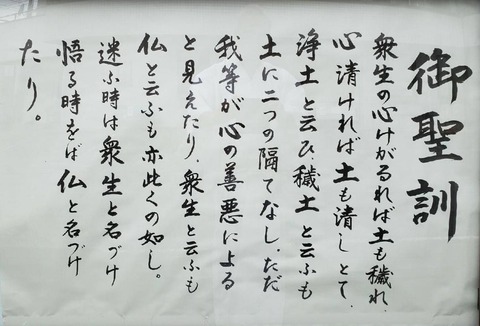 御聖訓
衆生の心けがるれば土も穢れ、
心清ければ土も清しとて、
浄土と云ひ、穢土と云ふも
土に二つの隔てなし、ただ
我等が心の善悪による
と見えたり、衆生と云ふも
仏と云ふも亦此くの如し。
迷ふ時は衆生と名づけ
悟る時をば仏と名づけ
たり。